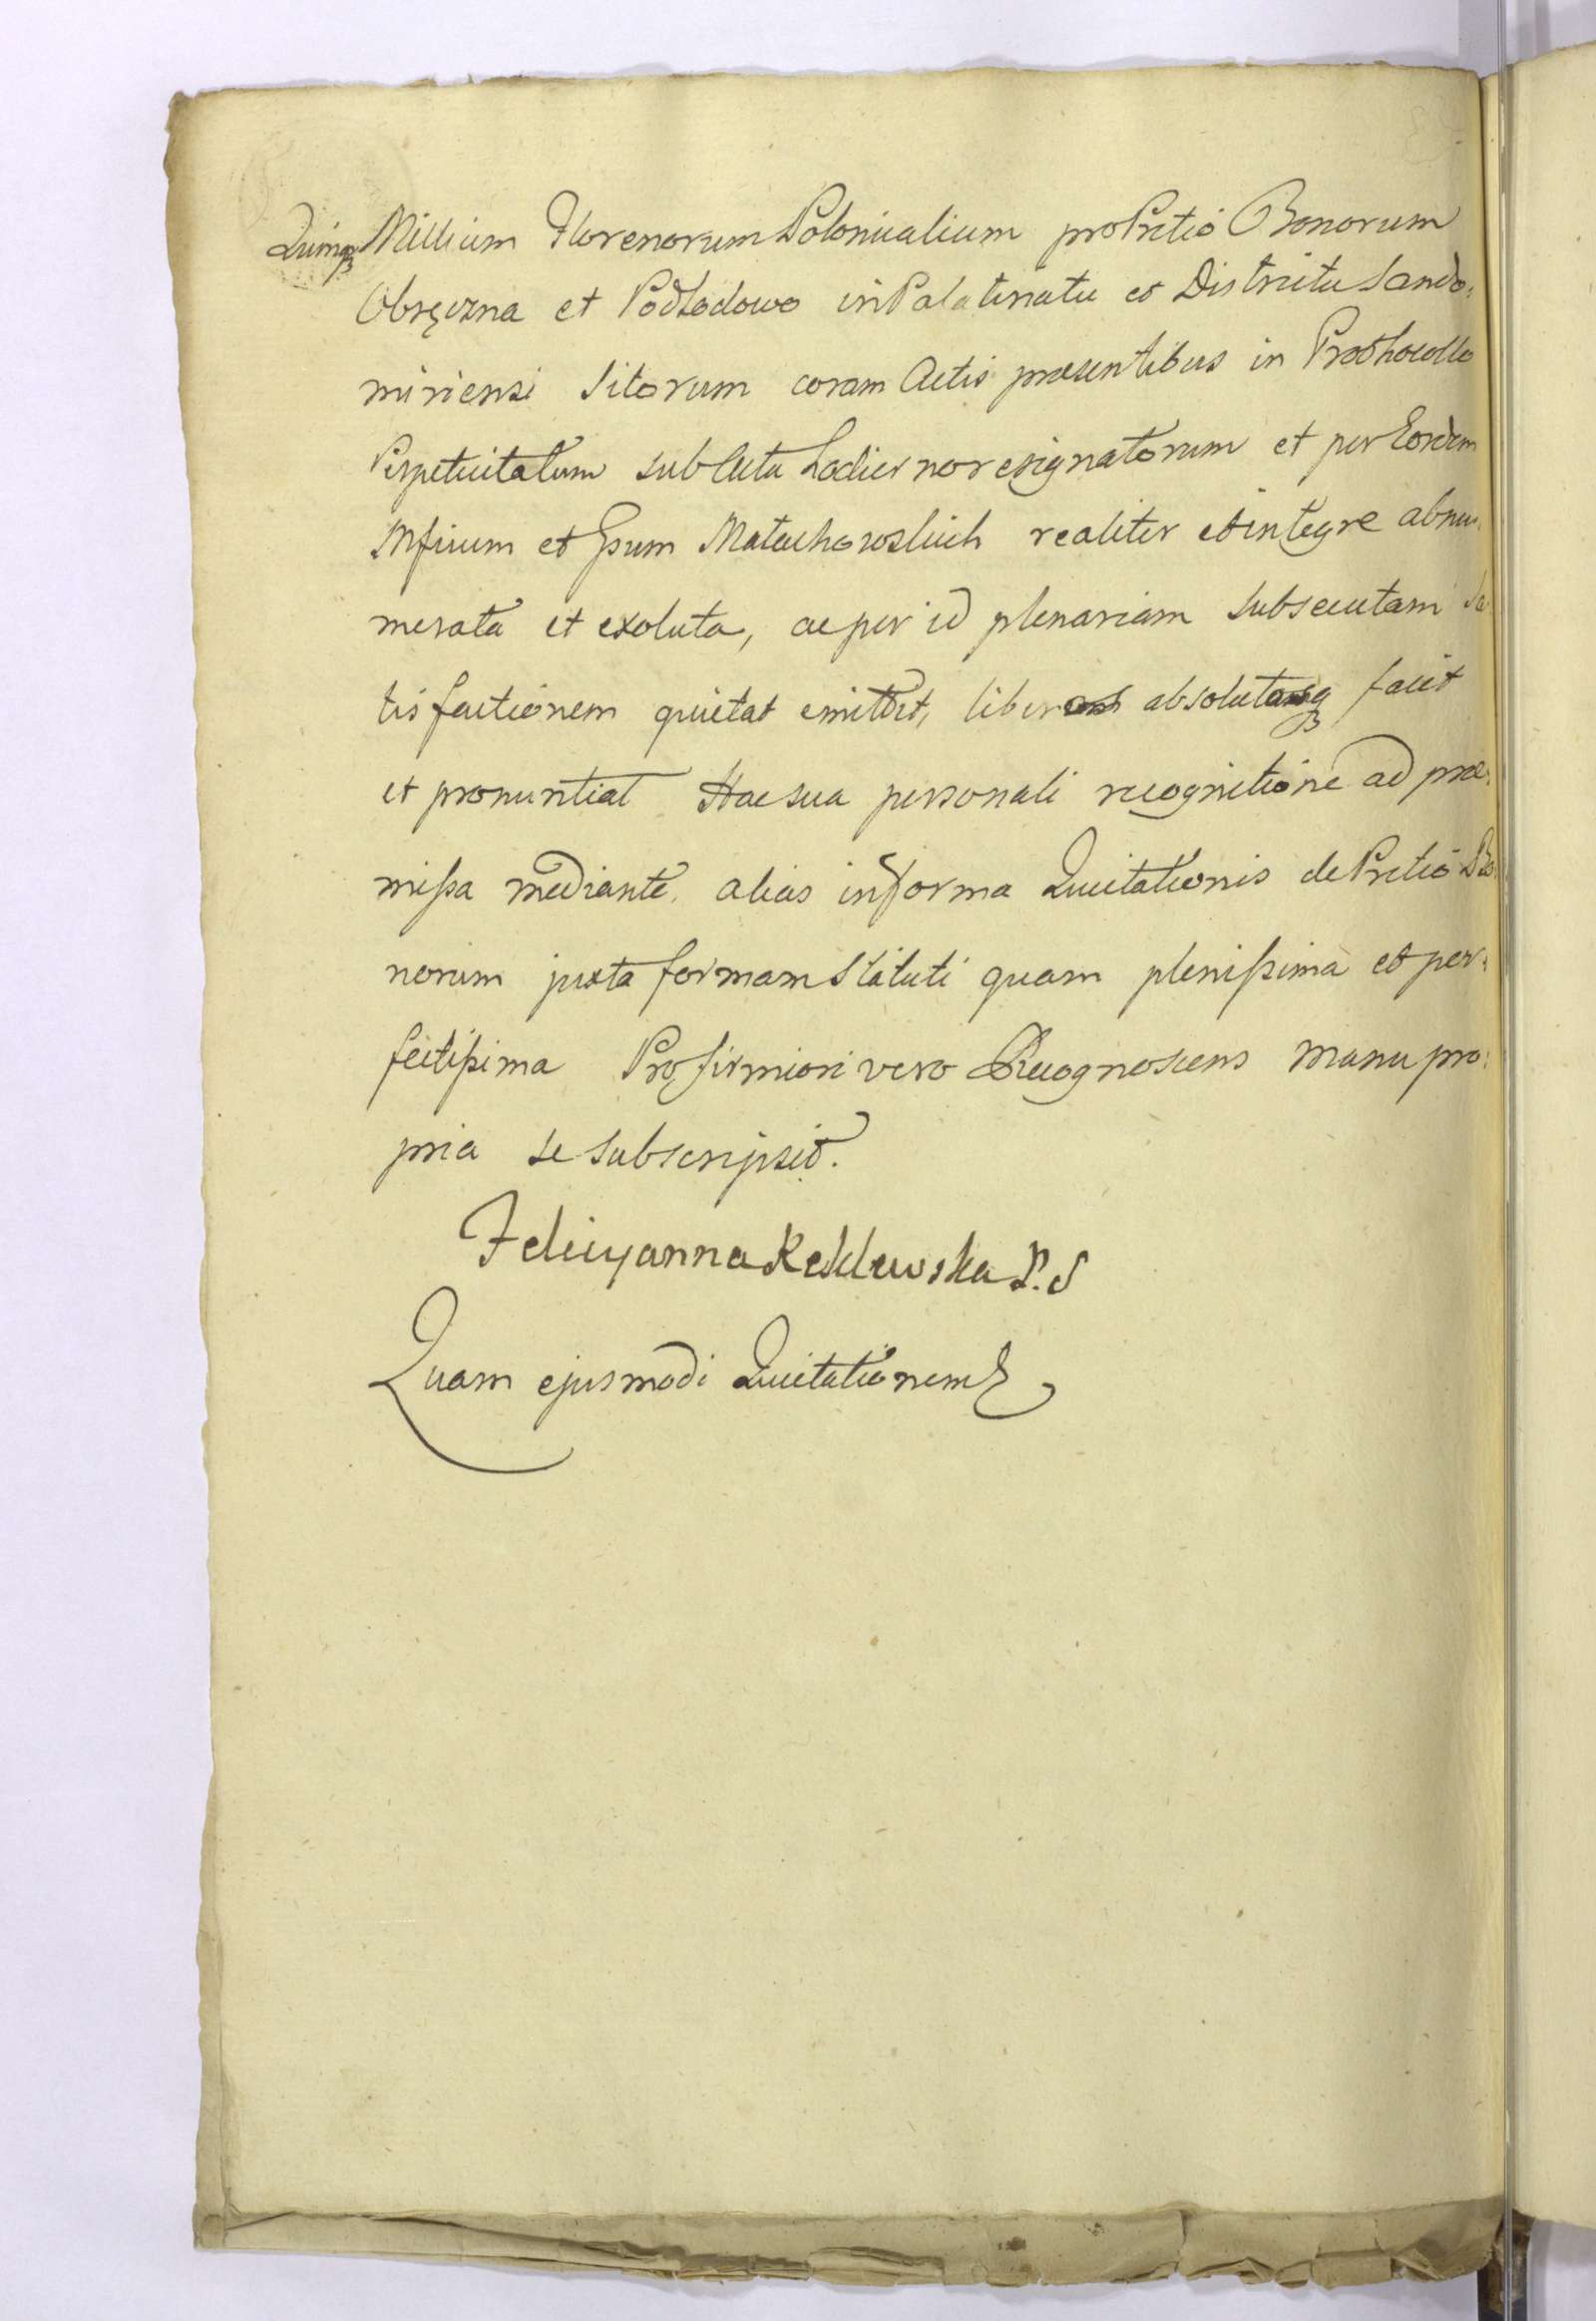 Quinq Millium Florenorum Polonicalium pro Pretio Bonorum
Obręczna et Podłodowo in Palatinatu et Districtu Sando:
miriensi Sitorum coram Actis præsentibus in Prothocollo
Perpetuitatum sub Actu hodierno resignatorum et per Eosdem
Mficum et Gsum Małachowskich realiter et integre abnu:
merata et exoluta, ac per id plenariam subsecutam Sa
tisfactionem quietat emittit, liberos absolutosq facit
et pronuntiat Hac sua personali recognitione ad præ:
missa mediante. alias in forma Quietationis de Pretio Bo:
norum juxta formam Statuti quam plenissima et per:
fectissima Pro firmiori vero Recognoscens manu pro:
pria se subscripsit.
Felicyanna Reklewska P. S
Quam ejusmodi Quietationem